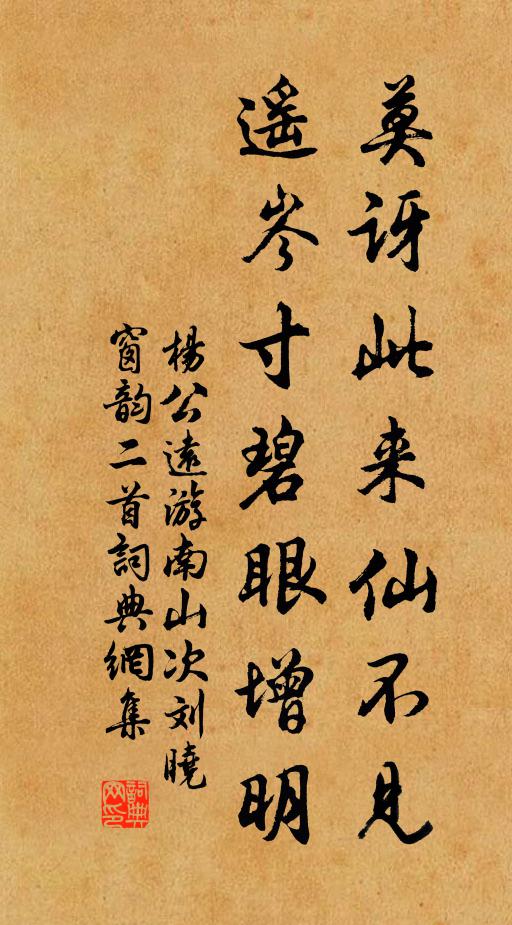 莫讶此来仙不见
遥岑寸碧眼增明
楊公遠游南山次刘曉
窗韵二首詞典網集
詞典
网印